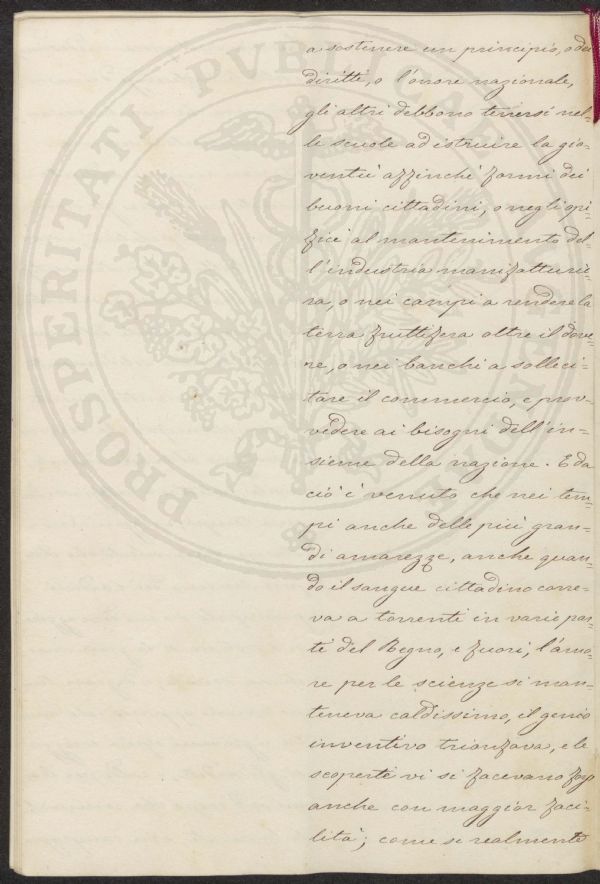 a sostenere un principio, o dei
diritti, o l'onore nazionale,
gli altri debbono tenersi nel=
le scuole ad istruire la gio=
ventù affinchè formi dei
buoni cittadini, o negli opi=
fici al mantenimento del=
l'industria manifatturie=
ra, o nei campi a rendere la
terra fruttifera oltre il dove=
re, o nei banchi a solleci=
tare il commercio, e prov=
vedere ai bisogni dell'in=
sieme della nazione. E da
ciò è venuto che nei tem=
pi anche delle più gran=
di amarezze, anche quan=
do il sangue cittadino corre=
va a torrenti in varie par=
ti del Regno, e fuori, l'amo=
re per le scienze si man=
teneva caldissimo, il genio
inventivo trionfava, e le
scoperte vi si facevano
anche con maggior faci=
lità; come se realmente
PROSPERITATI PVBLICAE